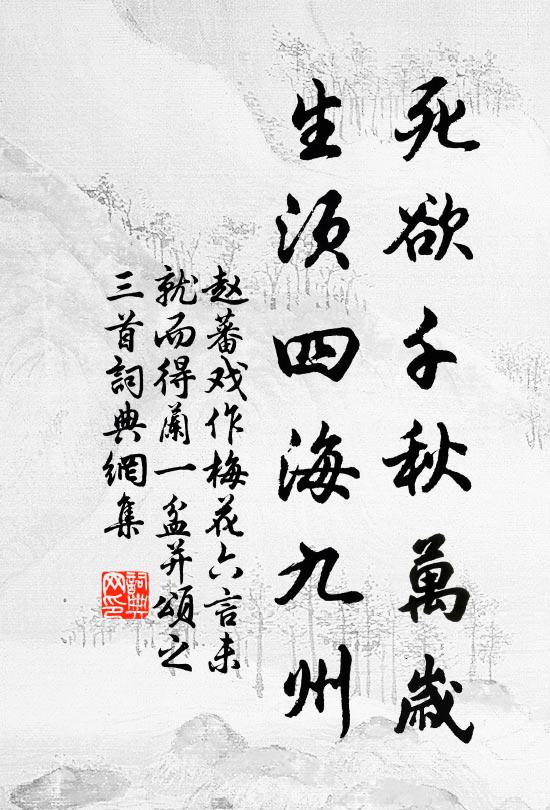 死欲千秋萬歲
生須四海九州
赵蕃戏作梅花六言未
就而得蘭一盆并頌之
三首詞典網集
詞典
网印